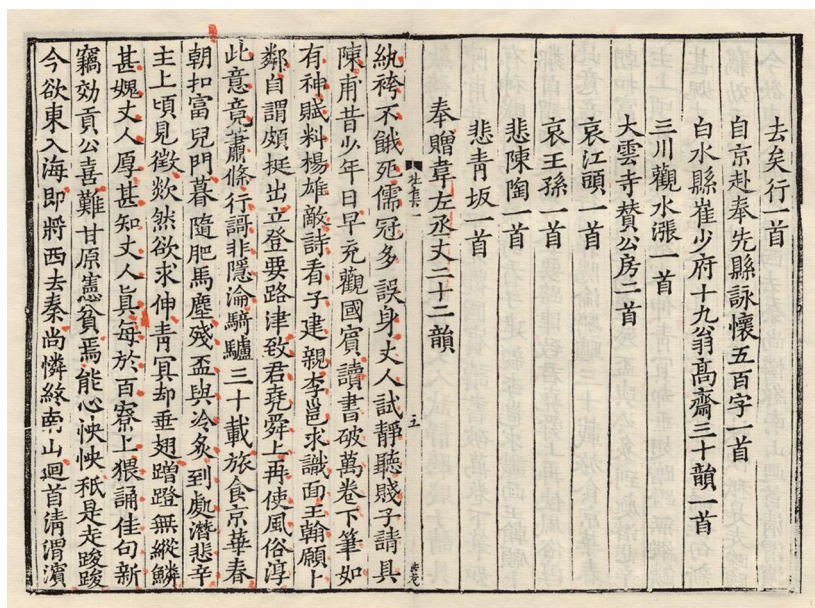 去矣行一首
自京赴奉先縣詠懷五百字一首
白水縣崔少府十九翁高齋三十韻一首
三川觀水漲一首
大雲寺贊公房二首
哀江頭一首
哀王孫一首
悲陳陶一首
悲青坂一首
杜集一
五
奉贈韋左丞丈二十二韻
紈袴不餓死儒冠多誤身丈人試靜聽賤子請具
陳甫昔少年日早充觀國賓讀書破萬卷下筆如
有神賦料楊雄敵詩看子建親李邕求識面王翰願卜
鄰自謂頗挺出立登要路津致君堯舜上再使風俗淳
此意竟蕭條行謌非隱淪騎驢三十載旅食京華春
朝扣富兒門暮隨肥馬塵殘盃與冷炙到處潛悲辛
主上頃見徵欻然欲求伸青冥却垂翅蹭蹬無縱鱗
甚媿丈人厚甚知丈人眞每於百寮上猥誦佳句新
竊効貢公喜難甘原憲貧焉能心怏怏秖是走踆踆
今欲東入海即將西去秦尚憐終南山迴首清渭濱